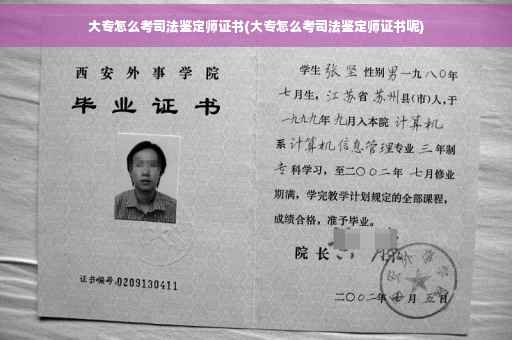 大专怎么考司法鉴定师证书(大专怎么考司法鉴定师证书呢)
西安外事学院
毕业证书
证书编号:0209130411
学生 张坚 性别男一九八〇年
七月生，江苏省 苏州县(市)人,于
一九九九年九月入本院 计算机
系计算机信息管理专业 三 年制
专科学习，至二〇〇二年 七月修业
期满，学完教学计划规定的全部课程，
成绩合格，准予毕业。
院长
二〇〇二年 月五日